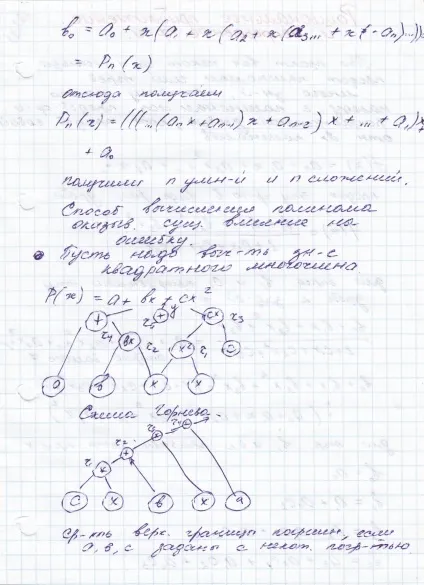 b₀ = a₀ + x(a₁ + x(a₂ + x(a₃... + x(-aₙ)...))
= Pₙ(x)
отсюда получаем
Pₙ(x) = (((...(aₙx + aₙ₋₁)x + aₙ₋₂)x + ... + a₁)x
+ a₀
получили n умн-й и n сложений.
Способ вычисления полинома
оказыв. сущ. влияние на
ошибку.
Пусть надо выч-ть зн-е
квадратного многочлена
P(x) = a + bx + cx²
+ r₄ bx r₂ r₅ + y x² r₁ cx r₃ c
a b x x
Схема Горнера.
r₁ x r₂ + x +
c x b x a
ср-ть верх. границы погрешн, если
a, b, c заданы с некот. погр-тью